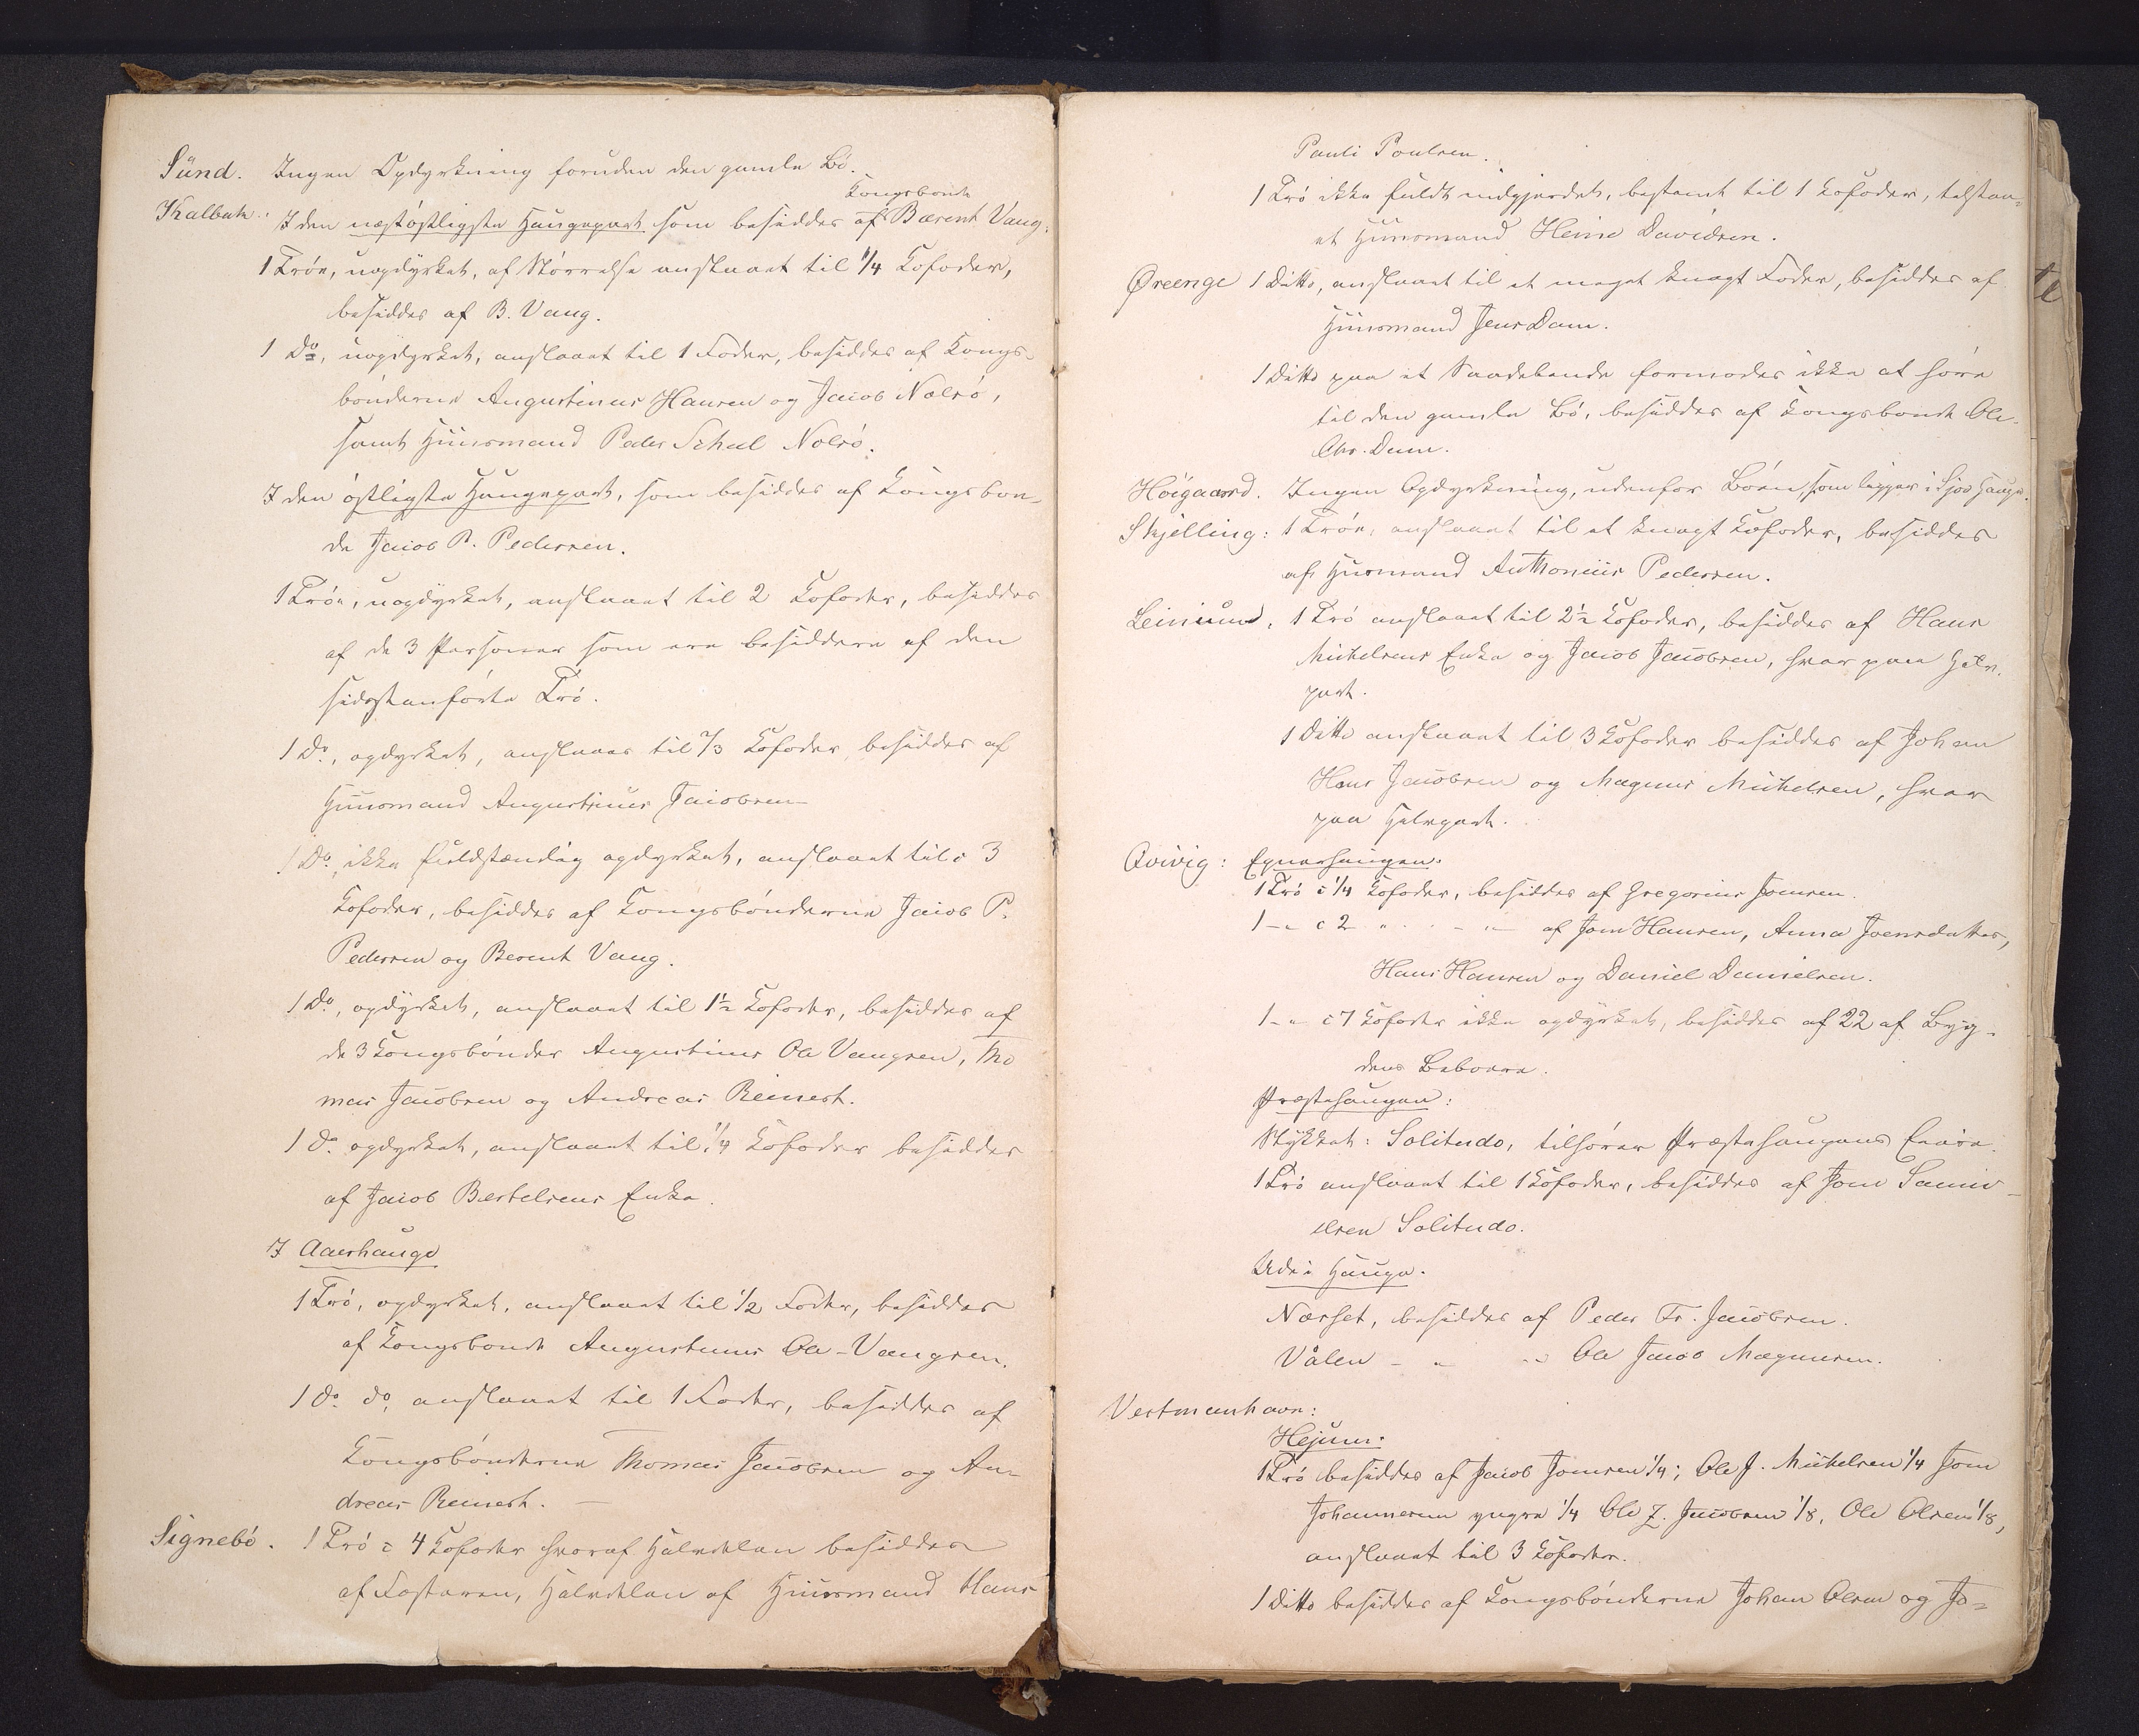 Sund. Ingen Opdyrkning foruden den gamle Bö.
Kongsbonde
Kalbak: I den næstöstligste Haugepart som besiddes af Bærent Vang.
1 Tröe, uopdyrket, af Störrelse anslaaet til 1/4 Kofoder,
besiddes af B. Vang.
1 Do, uopdyrket, anslaaet til 1 Foder, besiddes af Kongs-
bönderne Augustinus Hansen og Jacob Nolsö,
samt Huusmand Peder Nolsö.
I den östligste Haugepart, som besiddes af Kongsbon-
de Jacob P. Pedersen.
1 Tröe, uopdyrket, anslaaet til 2 Kofoder, besiddes
af de 3 Personer som ere besiddere af den
sidstanförte Trö.
1 Do, opdyrket, anslaaes til 2/3 Kofoder, besiddes af
Huusmand Augustinus Jacobsen
1 Do, ikke fuldstændig opdyrket, anslaaet til c 3
Kofoder, besiddes af Kongsbönderne Jacob P.
Pedersen og Berent Vang.
1 Do, opdyrket, anslaaet til 1½ Kofoder, besiddes af
de 3 Kongsbönder Augustinus Ole Vangsen, Tho
mas Jacobsen og Andreas Reinert.
1 do opdyrket, anslaaet til 1/4 Kofoder besiddes
af Jacob Bertelsens Enke.
I Aaerhauge
1 Trö, opdyrket, anslaaet til 1/2 Foder, besiddes
af Kongsbonde Augustinus Ole-Vangsen.
1 do do, anslaaet til 1 Foder, besiddes af
Kongsbönderne Thomas Jacobsen og An-
dreas Reinert. —
Signebö. 1 Trö c 4 Kofoder hvoraf Halvdelen besiddes
af Fæsteren, Halvdelen af Huusmand Hans
Pauli Poulsen.
1 Trö ikke fuldt indgjerdet, bestemt til 1 Kofoder, tilstaa=
et Huusmand Heine Davidsen.
Øreenge 1 Ditto, anslaaet til et meget knapt Foder, besiddes af
Huusmand Jens Dam.
1 Ditto paa et formodes ikke at höre
til den gamle Bö, besiddes af Kongsbonde Ole
Chr. Dam.
Höigaard. Ingen Opdyrkning, udenfor Böen, som ligger i Hauge.
Skjelling: 1 Tröe, anslaaet til et knapt Kofoder, besiddes
af Huusmand Anthonius Pedersen.
Leinum. 1 Trö anslaaet til 2½ Kofoder, besiddes af Hans
Michelsens Enke og Jacob Jacobsen, hver paa Halv-
part.
1 Ditto anslaaet til 3 Kofoder besiddes af Johan
Hans Jacobsen og Magnus Michelsen, hver
paa Halvpart.
Qvivig: Egnerhaugen.
1 Trö c 1/4 Kofoder, besiddes af Gregorius Joensen.
1 - " c 2 " - - " af Joen Hansen, Anna Joensdatter,
Hans Hansen og Daniel Danielsen.
1 - " c 7 Kofoder ikke opdyrket, besiddes af 22 af Byg-
dens Beboere.
Præstehaugen:
Stykket: Solitudo, tilhörer Præstehaugens Eiere.
1 Trö anslaaet til 1 Kofoder, besiddes af Joen Samu-
elsen Solitudo.
Ude i Hauge.
Nærset, besiddes af Peder Fr. Jacobsen.
Vålen - " - " Ole Jacob Magnusen.
Vestmanhavn:
Hejum.
1 Trö besiddes af Jacob Joensen 1/4; Ole J. Michelsen 1/4 Joen
Johannesen yngre 1/4 Ole Z. Jacobsen 1/8, Ole Olsen 1/8,
anslaaet til 3 Kofoder.
1 Ditto besiddes af Kongsbönderne Johan Olsen og Jo=